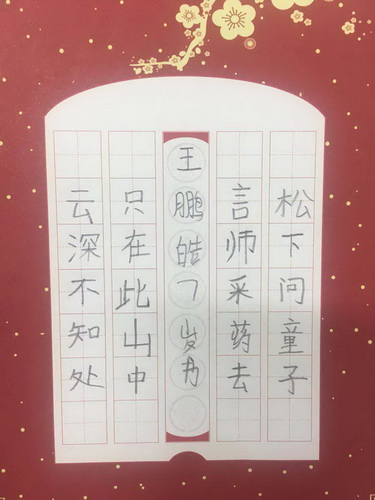 松下问童子
言师采药去
王鹏皓7岁男
只在此山中
云深不知处